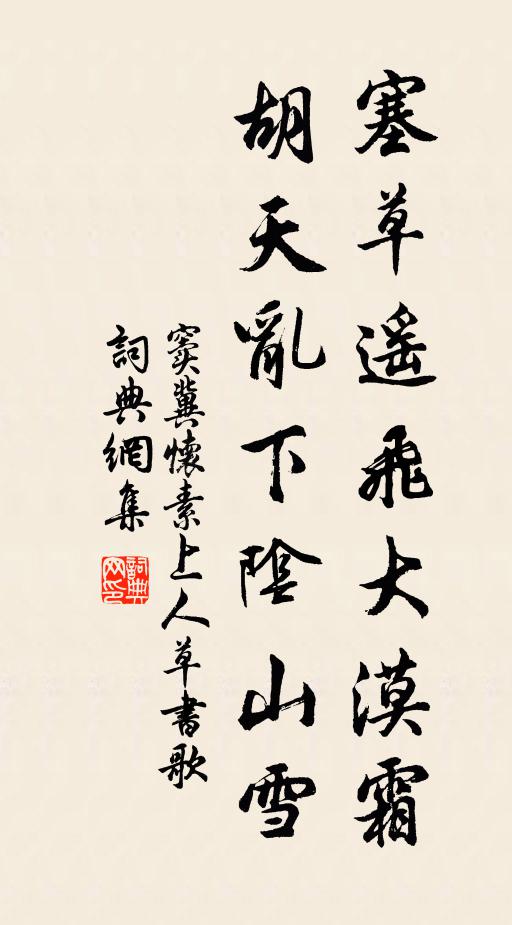 塞草遙飛大漠霜
胡天亂下陰山雪
竇冀懷素上人草書歌
詞典網集
詞典网印